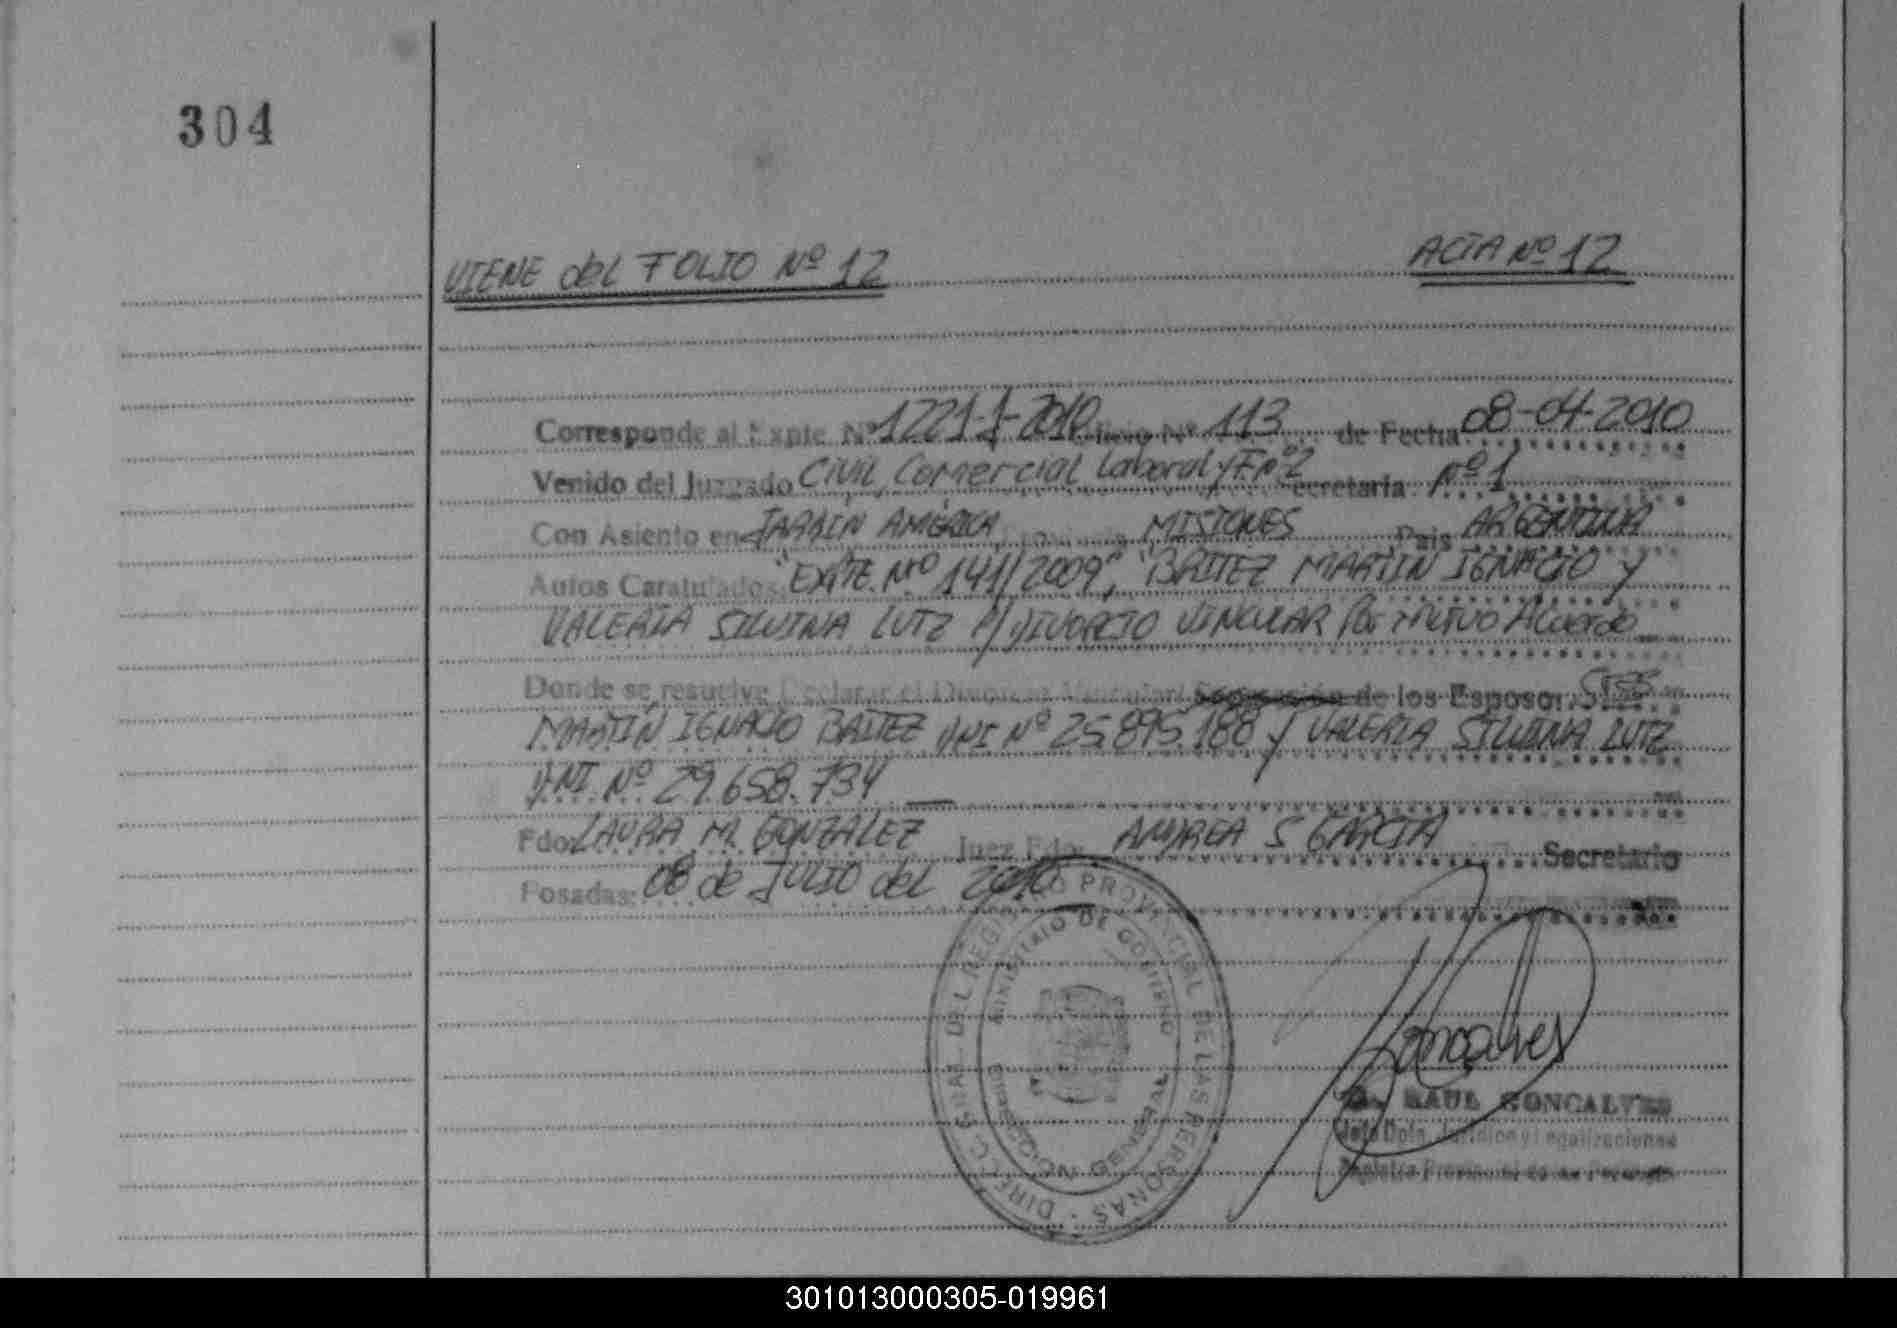 304
VIENE del FOLIO Nº 12
ACTA Nº 12
Corresponde al Expte Nº 1221-J-2010 Oficio Nº 113 de Fecha 08-04-2010
Venido del Juzgado Civil, Comercial Laboral y F. nº2 Secretaria Nº 1
Con Asiento en JARDIN AMÉRICA Provincia MISIONES Pais ARGENTINA
Autos Caratulados: "EXPTE. Nº 141/2009", "BAITEZ MARTIN IGNACIO y
VALERIA SILVINA LUTZ P/ DIVORCIO VINCULAR Por Mutuo Acuerdo
Donde se resuelve Declarar el Divorcio Vincular/ Separación de los Esposos: Sres
MARTÍN IGNACIO BAITEZ DNI Nº 25.895.188 y VALERIA SILVINA LUTZ
DNI Nº 29.658.734
Fdo: LAURA M. GONZALEZ Juez Fdo: ANDREA S GARCIA Secretario
Posadas: 08 de JULIO del 2010
DIRECC. GRAL. DEL REGISTRO PROVINCIAL DE LAS PERSONAS
MINISTERIO DE GOBIERNO
DIRECCION GENERAL
Goncalves
RAUL GONCALVES
Jefe Dpto. Juridico y Legalizaciones
Registro Provincial de las Personas
301013000305-019961